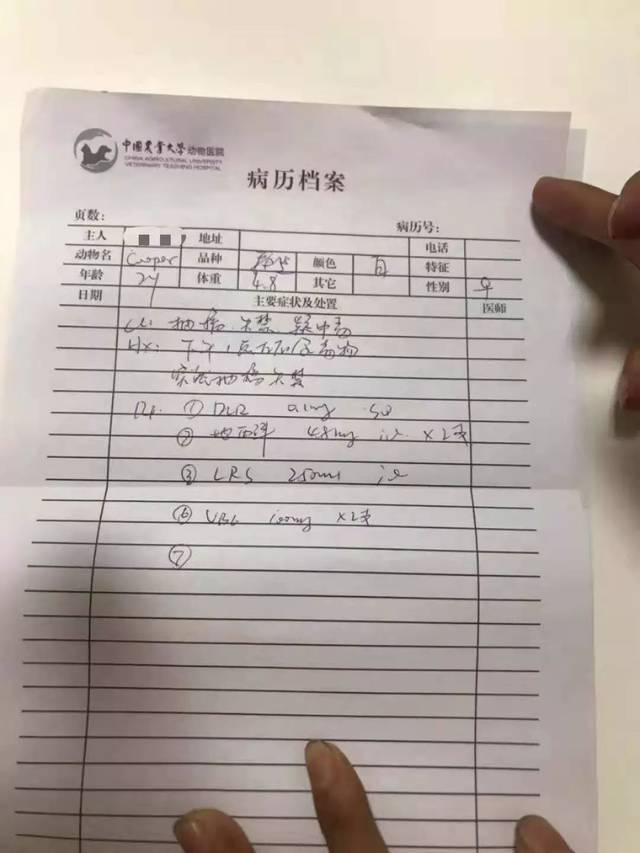 中国农业大学动物医院
CHINA AGRICULTURAL UNIVERSITY
VETERINARY TEACHING HOSPITAL
病历档案
页数: 病历号:
主人 地址 电话
动物名 Cooper 品种 颜色 白 特征
年龄 2y 体重 4.8 其它 性别 ♀
日期 主要症状及处置 医师
抽搐 不禁 疑中毒
Hx: 下午1点
抽搐
① 0.1mg
② 地西泮 4.8mg i.v ×2支
③ LRS 250ml iv
⑥ 100mg ×2支
⑦